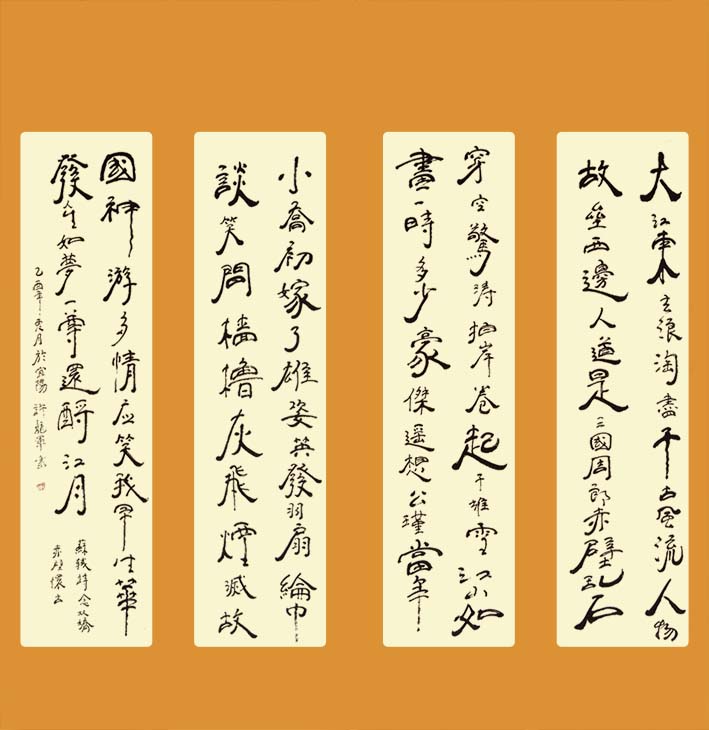 大江東去浪淘盡千古風流人物
故垒西邊人道是三國周郎赤壁乱石
穿空驚涛拍岸卷起千堆雪江山如
畫一時多少豪傑遥想公瑾當年
小喬初嫁了雄姿英發羽扇綸巾
談笑間檣櫓灰飛煙滅故
國神游多情应笑我早生華
發人生如夢一尊還酹江月
蘇軾詞念奴嬌
赤壁懷古
乙酉年冬月於宜陽許龍軍書